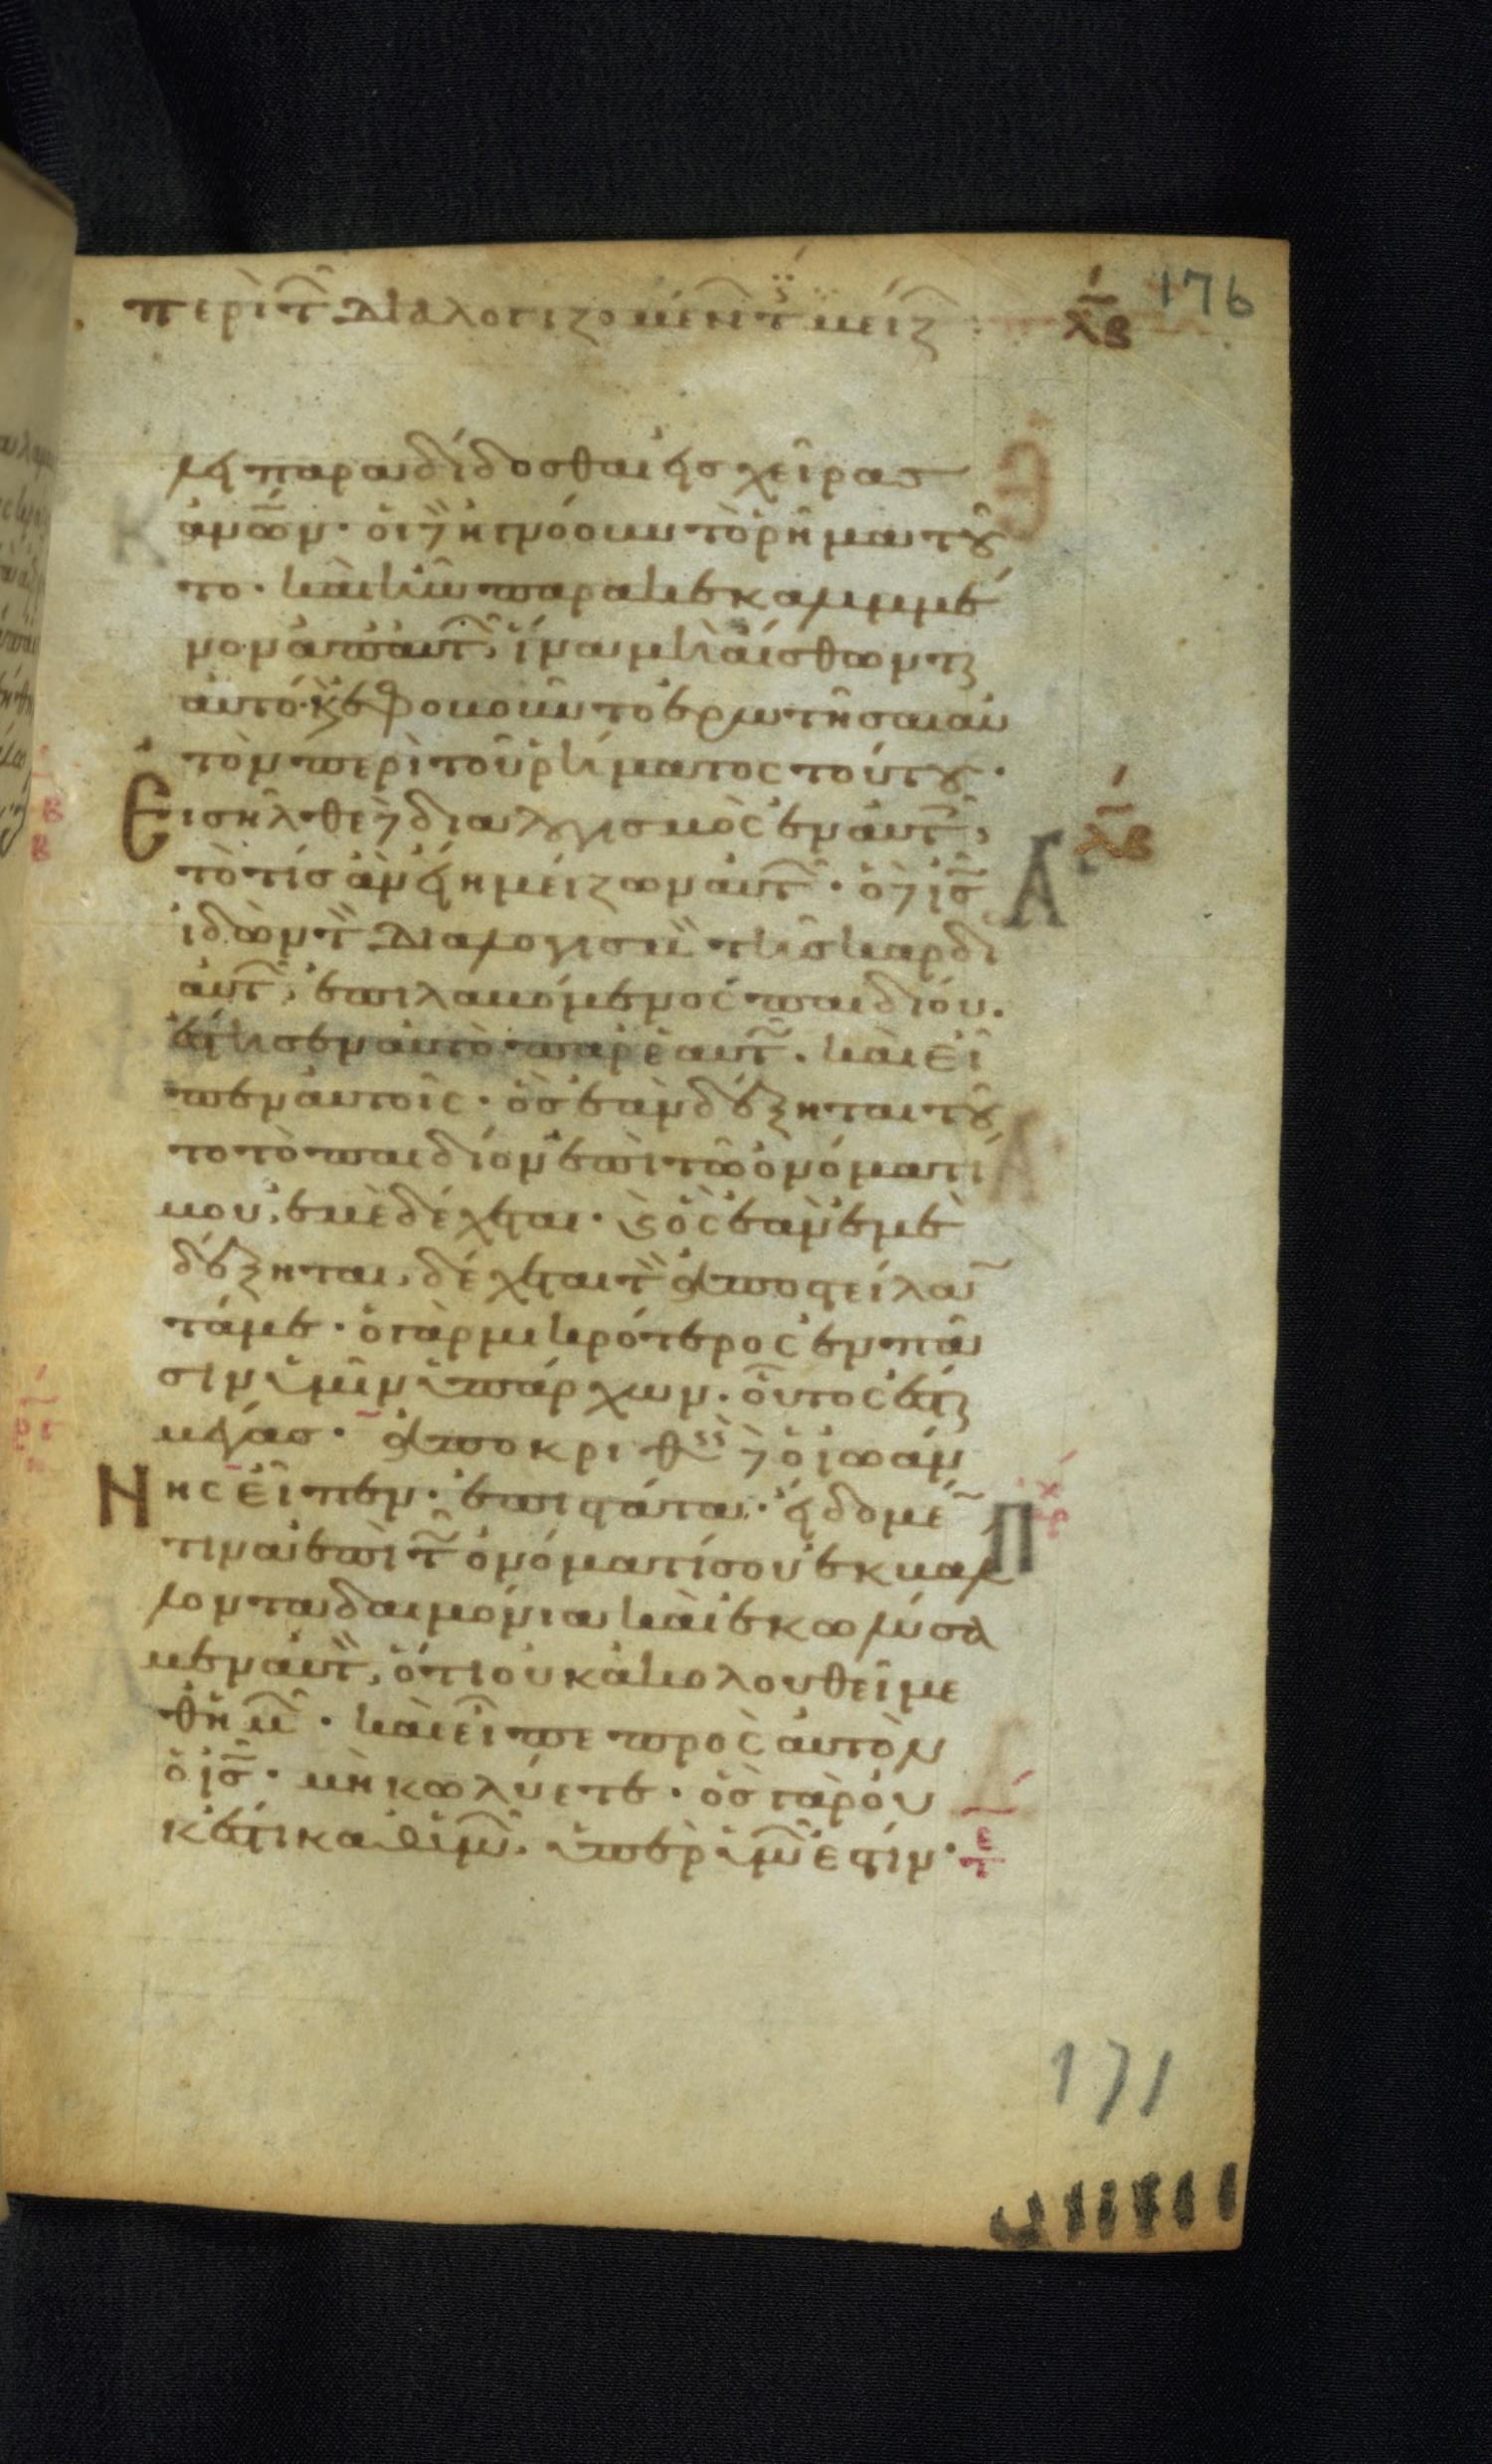 περὶ τ̑ διαλογιζομέν τ̑ μείζ λβ 176
λει παραδίδοσθαι εἰς χεῖρας
ἀν̅ων· οἱ δὲ ἠγνόουν τὸ ῥῆμα τοῦ
το· καὶ ἦν παρακεκαλυμμέ
νον ἀπ' αὐτ̑, ἵνα μὴ αἴσθωνται
αὐτό· κ̀ ἐφοβοῦντο ἐρωτῆσαι αὐ
τὸν περὶ τοῦ ῥήματος τούτου·
Εἰσῆλθε δὲ διαλογισμὸς ἐν αὐτ̑, λβ
τὸ τίς ἂν εἴη μείζων αὐτ̑· ὁ δὲ ι̅ς̅
ἰδὼν τ̀ διαλογισμ̀ τῆς καρδί
αὐτ̑, ἐπιλαβόμενος παιδίου·
ἔστησεν αὐτὸ παρ' ἑαυτ̑· καὶ εἶ
πεν αὐτοῖς· ὃς ἐὰν δέξηται τοῦ
το τὸ παιδίον ἐπὶ τῶ ὀνόματί
μου, ἐμὲ δέχεται· κ̀ ὃς ἐὰν ἐμὲ
δέξηται, δέχεται τ̀ ἀποστείλαν
τά με· ὁ γὰρ μικρότερος ἐν πᾶ
σιν ὑμῖν ὑπάρχων· οὗτος ἔσται
μέγας· ἀποκριθεὶς δὲ ὁ ἰωάν
Νης εἶπεν· ἐπιστάτα· εἴδομέν
τινα ἐπὶ τ̑ ὀνόματί σου ἐκβάλ
λοντα δαιμόνια καὶ ἐκωλύσα
μεν αὐτ̀, ὅτι οὐκ ἀκολουθεῖ με
θ' ἡμ̑· καὶ εἶπε πρὸς αὐτὸν
ὁ ι̅ς̅· μὴ κωλύετε· ὃς γὰρ οὐ
κ ἔστι καθ' ὑμ̑· ὑπὲρ ὑμ̑ ἐστίν·
171